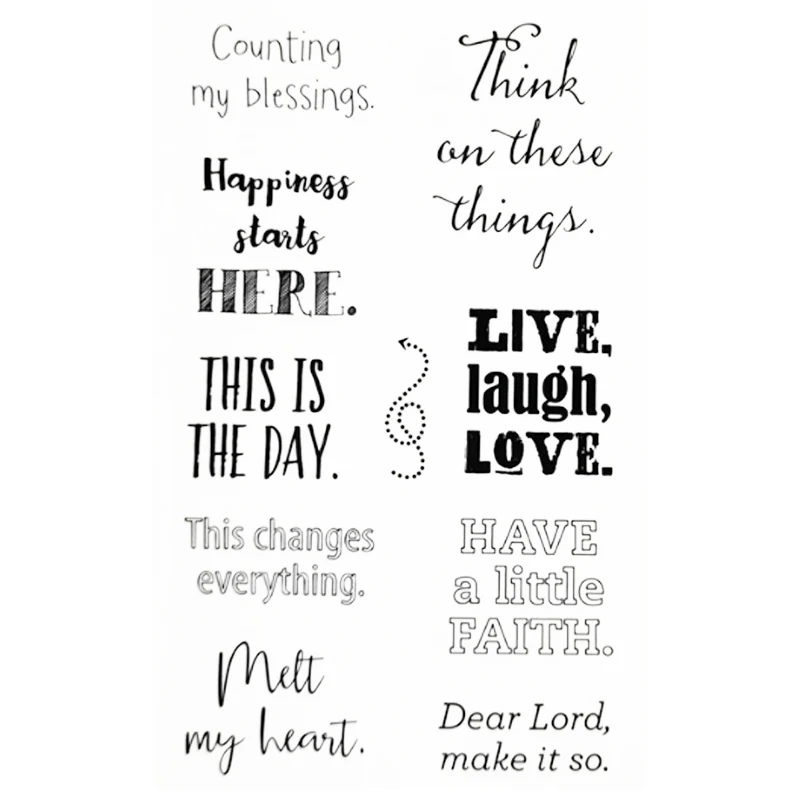 Counting
my blessings.
Happiness
starts
HERE.
THIS IS
THE DAY.
This changes
everything.
Melt
my heart.
Think
on these
things.
LIVE,
laugh,
LOVE.
HAVE
a little
FAITH.
Dear Lord,
make it so.